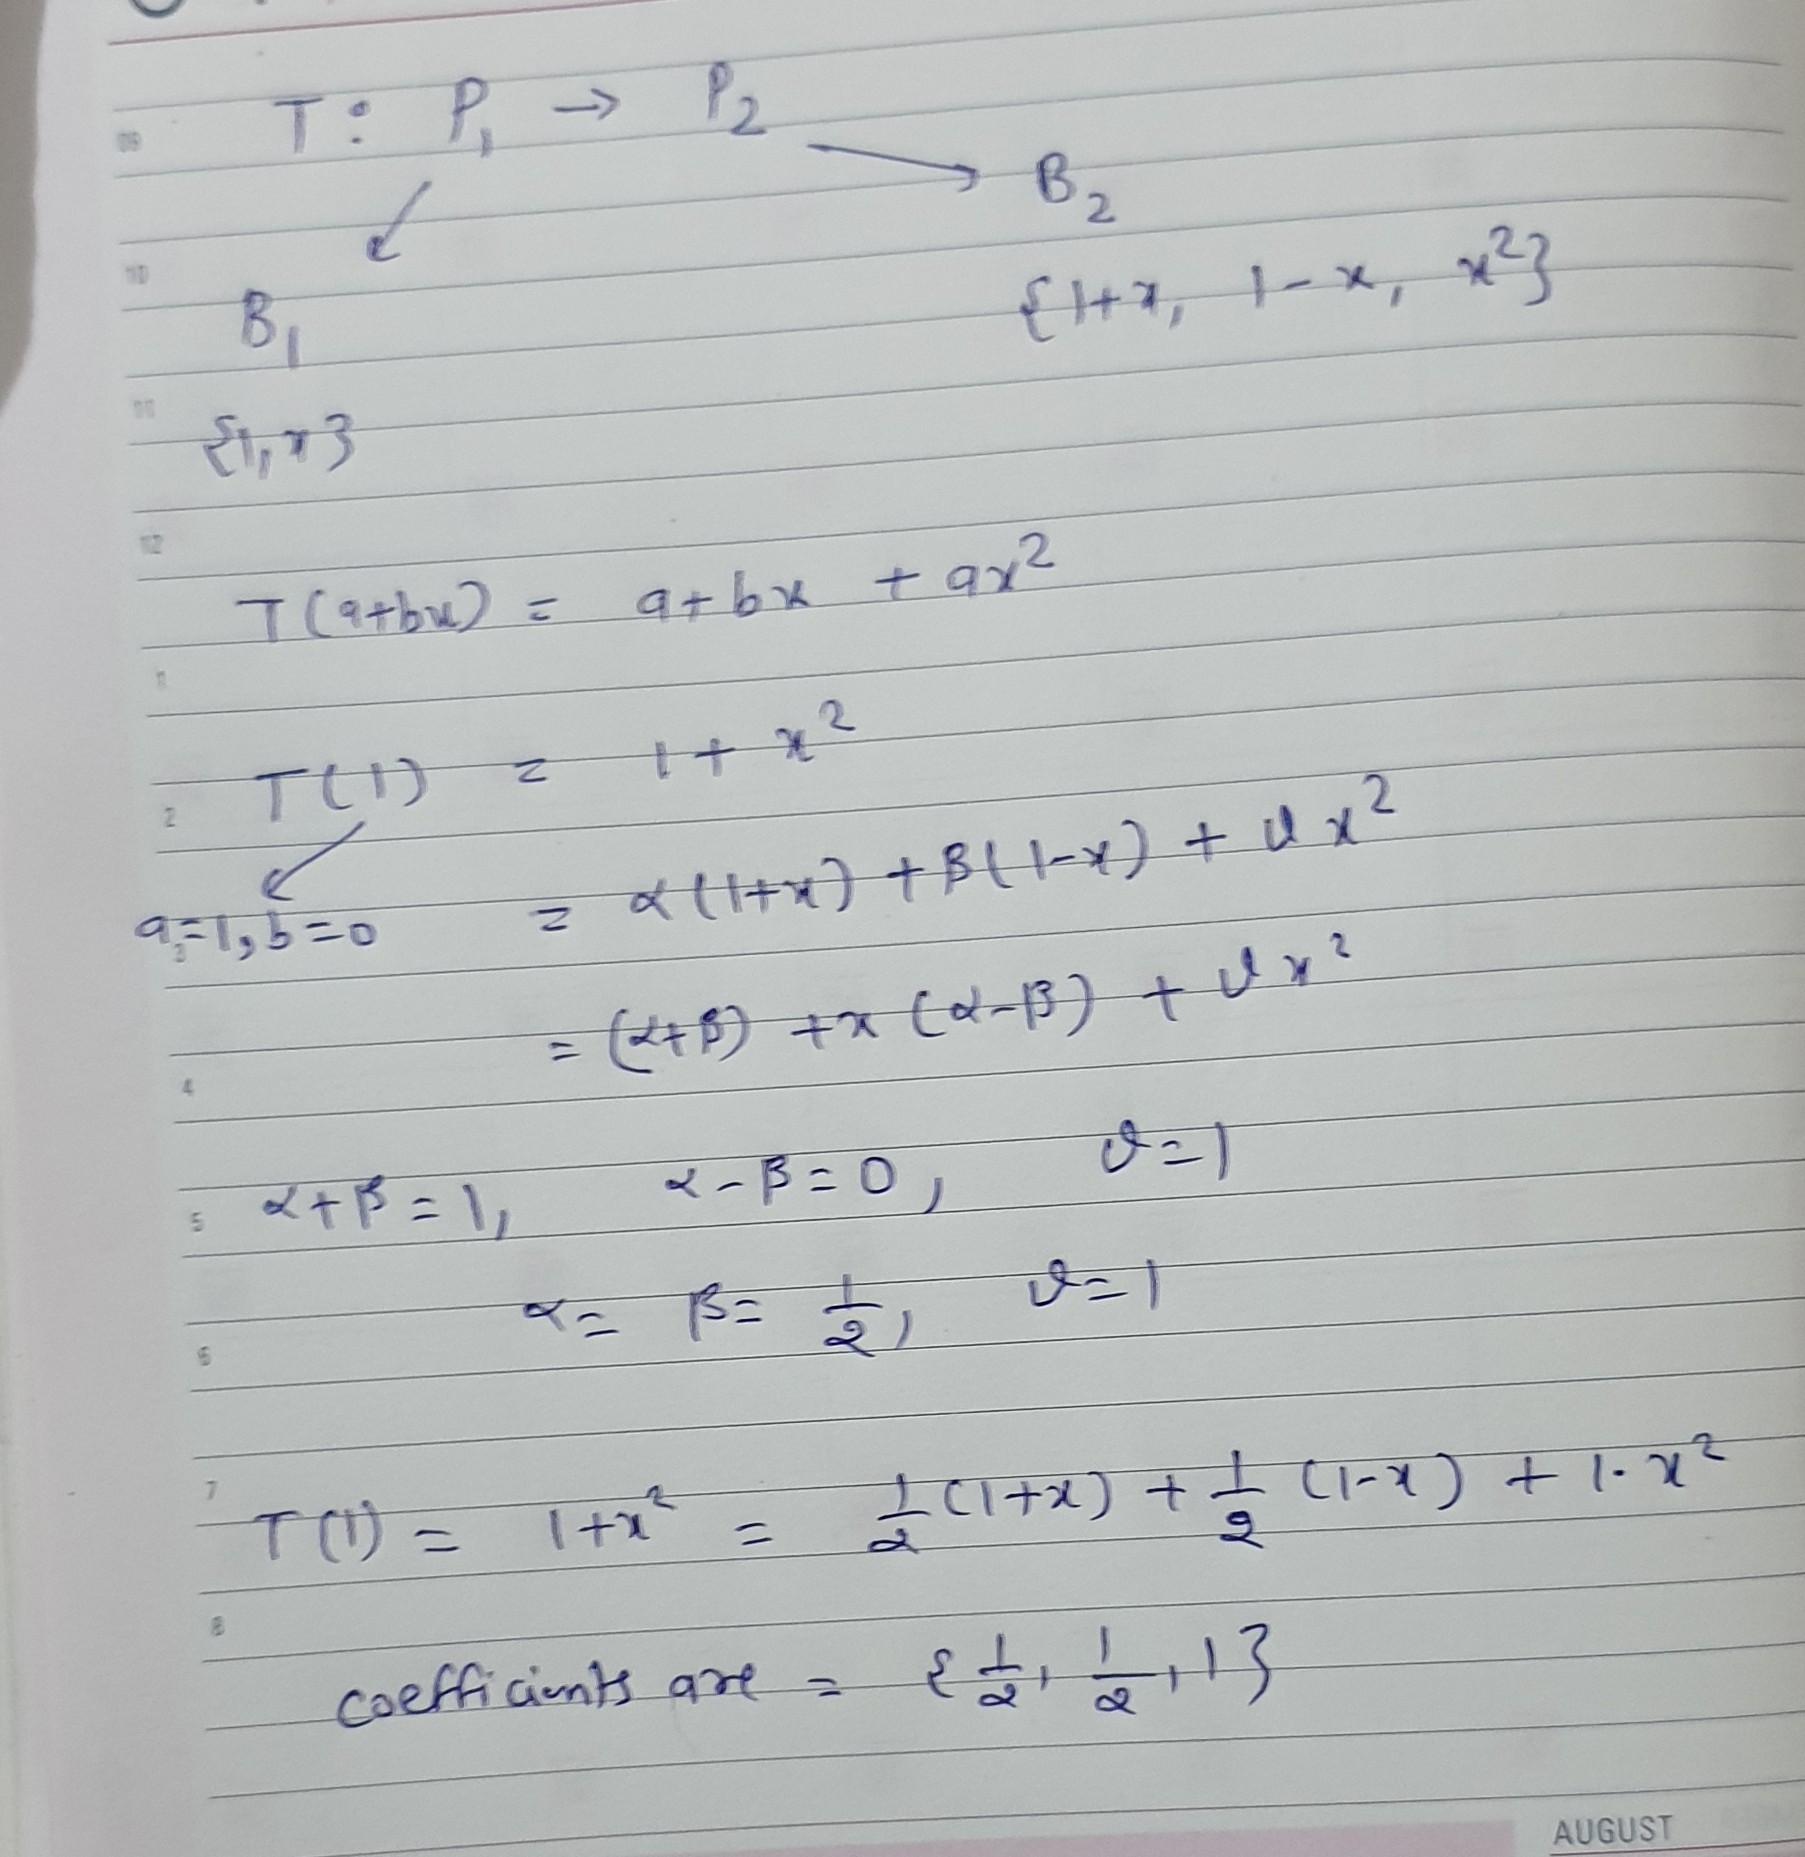 T: P₁ → P₂
B₂
{1+x, 1-x, x²}
B₁
{1, x}
T(a+bx) = a+bx + ax²
T(1) = 1+ x²
a=1, b=0
= α(1+x) + β(1-x) + ϑx²
= (α+β) +x (α-β) + ϑx²
α+β=1, α-β=0, ϑ=1
α= β= 1/2, ϑ=1
T(1) = 1+x² = 1/2(1+x) + 1/2 (1-x) + 1·x²
coefficients are = {1/2, 1/2, 1}
09
10
11
12
1
2
3
4
5
6
7
8
AUGUST